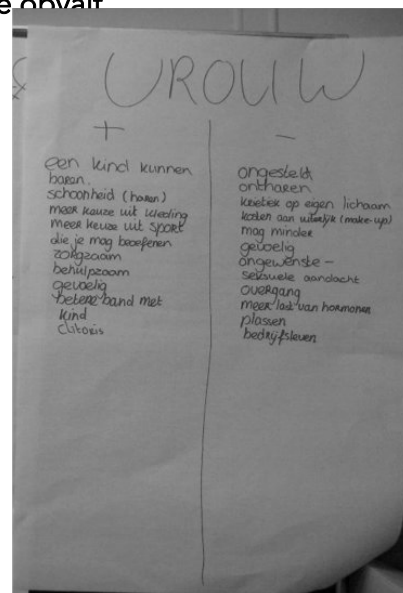 e opvalt
VROUW
+
een kind kunnen
baren.
schoonheid (haren)
meer keuze uit kleding
meer keuze uit sport
die je mag beoefenen
zorgzaam
behulpzaam
gevoelig
betere band met
kind
clitoris
-
ongesteld
ontharen
kritiek op eigen lichaam
kosten aan uiterlijk (make-up)
mag minder
gevoelig
ongewenste -
seksuele aandacht
overgang
meer last van hormonen
plassen
bedrijfsleven